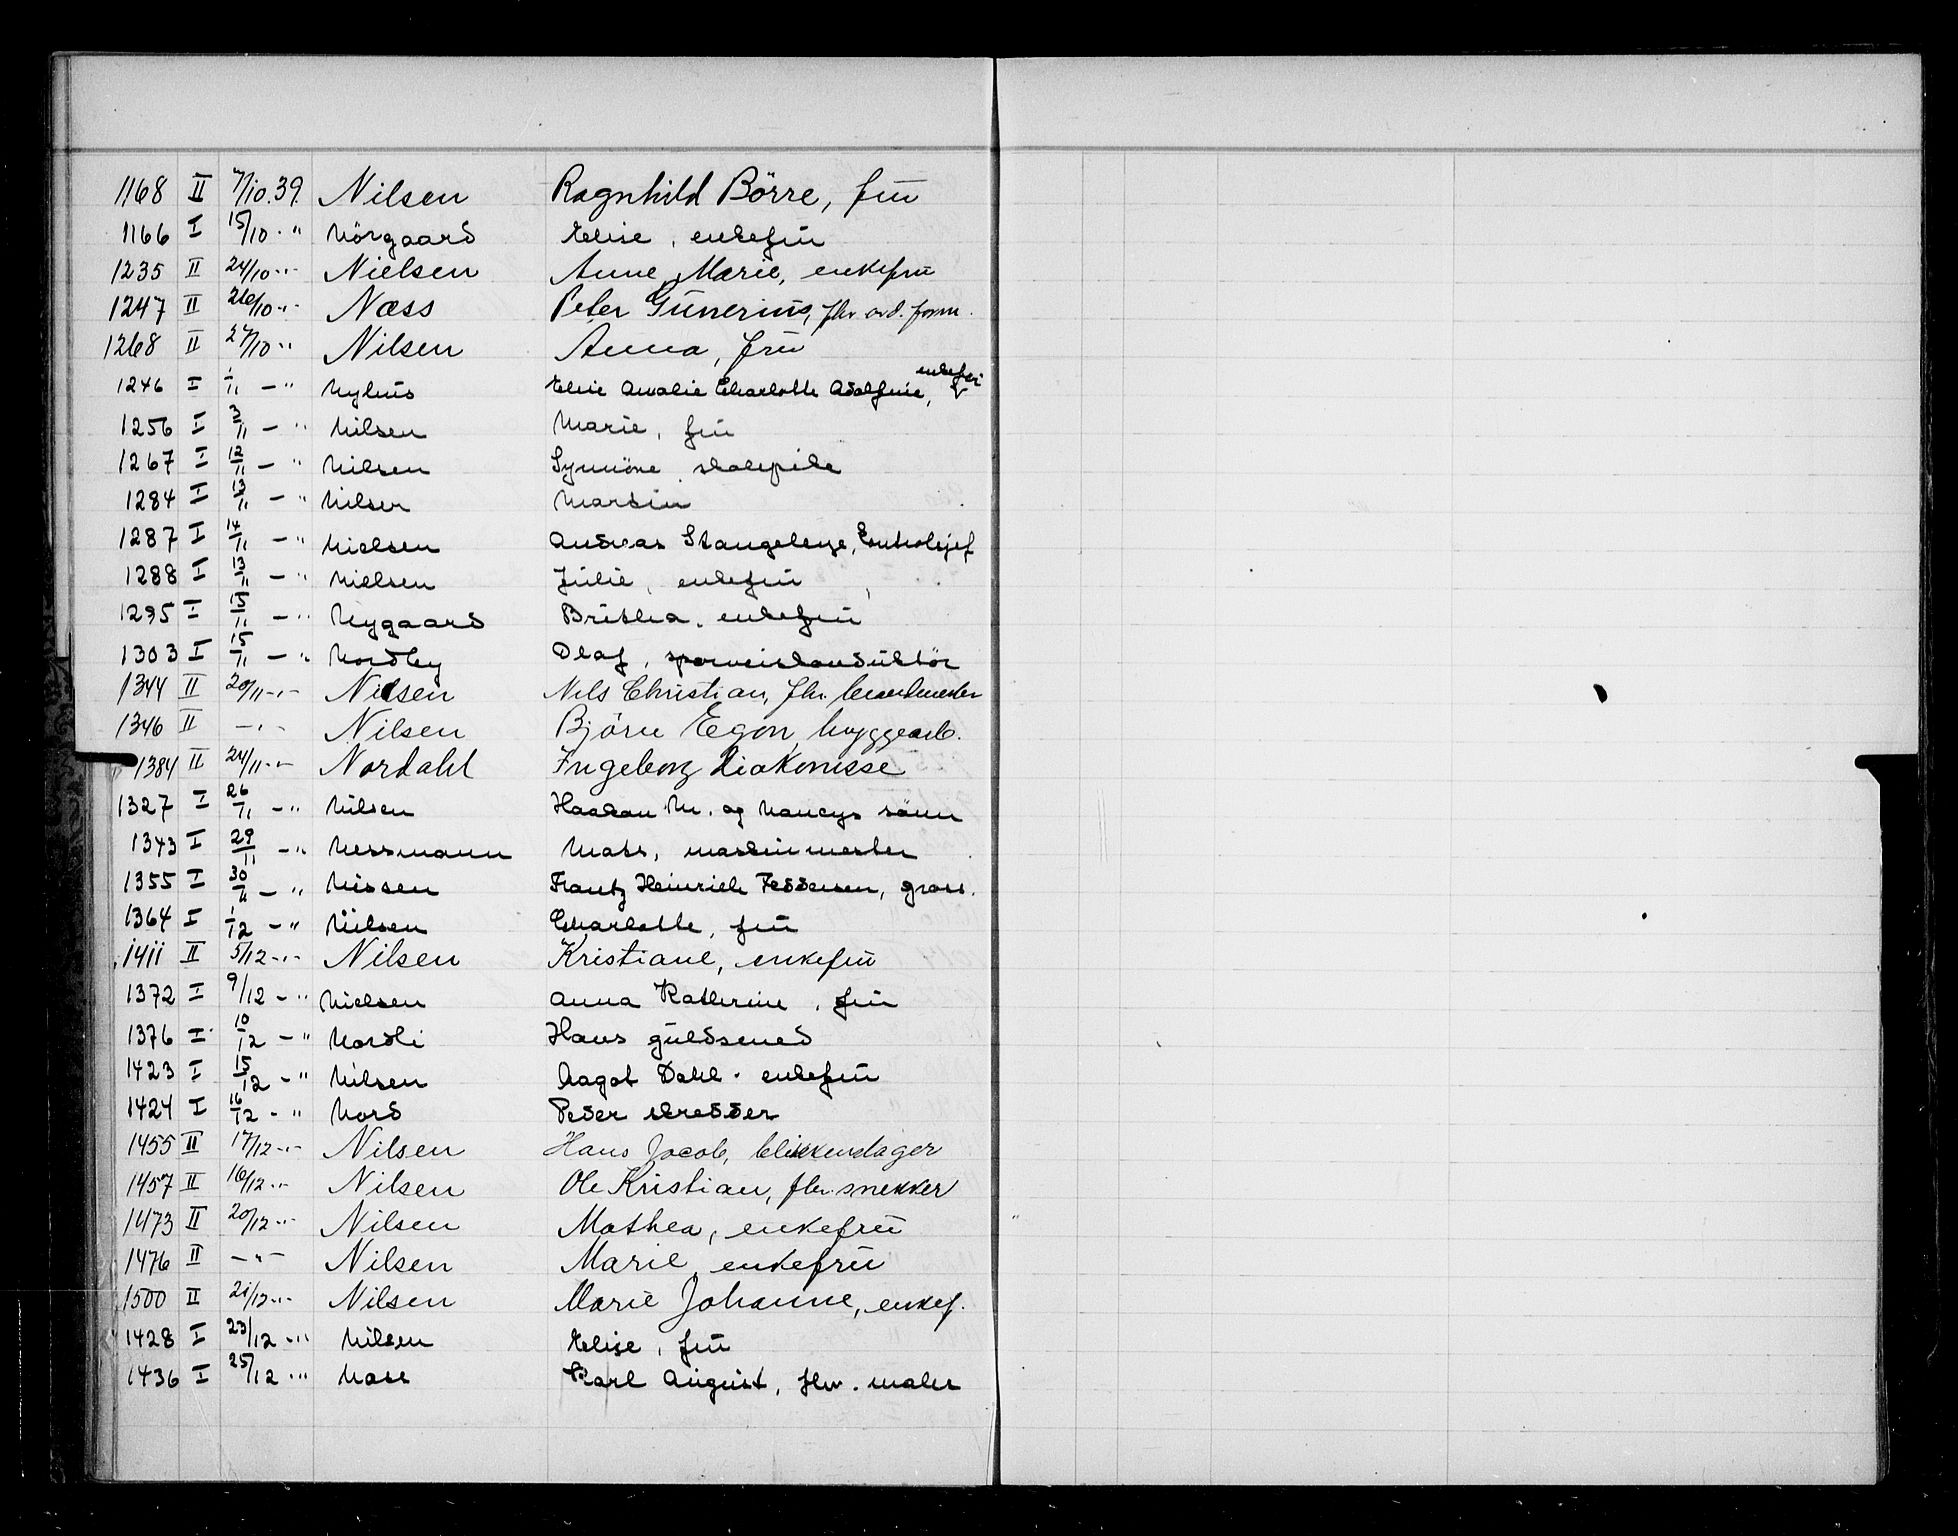 1168 II 7/10.39. Nilsen Ragnhild Börre, frü
1166 I 15/10 - " Nörgaard Elise, enkefrü
1235 II 24/10 -"- Nielsen Anne Marie, enkefrü
1247 II 26/10 -"- Næss Peter Günerius, fhv. avd. form.
1268 II 27/10 " Nilsen Anna, frü
1246 I 1/11 - " Nyhus Elise Amalie Charlotte Adolfine, enkefrü
1256 I 3/11 - " Nilsen Marie, frü
1267 I 12/11 - " Nilsen Synnöve skolepike
1284 I 13/11 - " Nilsen Martin
1287 I 14/11 - " Nielsen Andreas Stangeleye, Kontrolsjef
1288 I 13/11 - " Nielsen Jülie, enkefrü
1295 I 15/11 - " Nygaard Brithea. enkefrü
1303 I 15/11 - " Nordby Olaf, sporveiskondüktör
1344 II 20/11 -"- Nilsen Nils Christian, fhv. brandmester
1346 II -"- Nilsen Björn Egon, byggearb.
1384 II 24/11 -"- Nordahl Ingeborg diakonisse
1327 I 26/11 - " Nilsen Haakon M. og Nancys sönn
1343 I 29/11 - " Nessmann Mats, maskinmester
1355 I 30/11 - " Nissen Frantz Heinrich Feddersen, gross.
1364 I 1/12 - " Nilsen Charlotte, frü
1411 II 5/12 -"- Nilsen Kristiane, enkefrü
1372 I 9/12 - " Nielsen Anna Katherine, frü
1376 I 10/12 - " Nordli Hans güldsmed
1423 I 15/12 - " Nilsen Aagot Dahl. enkefrü
1424 I 16/12 - " Nord Peder skredder
1455 II 17/12 -"- Nilsen Hans Jacob, blikkenslager
1457 II 16/12 -"- Nilsen Ole Kristian, fhv. snekker
1473 II 20/12 -"- Nilsen Mathea, enkefrü
1476 II -"- Nilsen Marie, enkefrü
1500 II 21/12 -"- Nilsen Marie Johanne, enkef.
1428 I 23/12 - " Nilsen Elise, frü
1436 I 25/12 - " Næss Karl August, fhv. maler